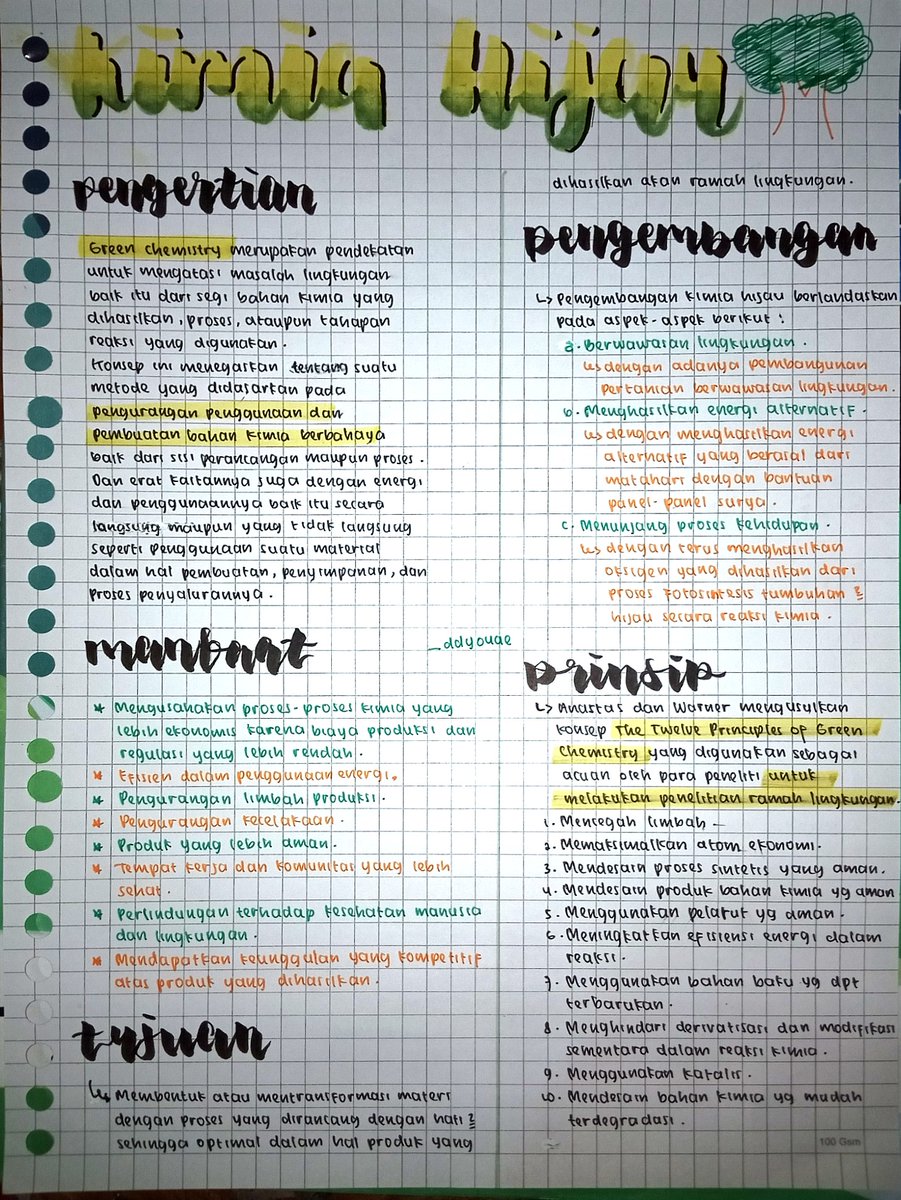 kimia hijau
pengertian
Green chemistry merupakan pendekatan
untuk mengatasi masalah lingkungan
baik itu dari segi bahan kimia yang
dihasilkan, proses, ataupun tahapan
reaksi yang digunakan.
Konsep ini menegaskan tentang suatu
metode yang didasarkan pada
pengurangan penggunaan dan
pembuatan bahan kimia berbahaya
baik dari sisi perancangan maupun proses.
Dan erat kaitannya juga dengan energi
dan penggunaannya baik itu secara
langsung maupun yang tidak langsung
seperti penggunaan suatu material
dalam hal pembuatan, penyimpanan, dan
proses penyalurannya.
manfaat
_ddyouae
* Mengusahakan proses-proses kimia yang
lebih ekonomis karena biaya produksi dan
regulasi yang lebih rendah.
* Efisien dalam penggunaan energi.
* Pengurangan limbah produksi.
* Pengurangan kecelakaan.
* Produk yang lebih aman.
* Tempat kerja dan komunitas yang lebih
sehat.
* Perlindungan terhadap kesehatan manusia
dan lingkungan.
* Mendapatkan keunggulan yang kompetitif
atas produk yang dihasilkan.
tujuan
↳ Membentuk atau mentransformasi materi
dengan proses yang dirancang dengan hati2
sehingga optimal dalam hal produk yang
dihasilkan akan ramah lingkungan.
pengembangan
↳ Pengembangan kimia hijau berlandaskan
pada aspek-aspek berikut :
a. Berwawasan lingkungan.
↳ dengan adanya pembangunan
pertanian berwawasan lingkungan.
b. Menghasilkan energi alternatif.
↳ dengan menghasilkan energi
alternatif yang berasal dari
matahari dengan bantuan
panel-panel surya.
c. Menunjang proses kehidupan.
↳ dengan terus menghasilkan
oksigen yang dihasilkan dari
proses fotosintesis tumbuhan2
hijau secara reaksi kimia.
prinsip
↳ Anastas dan Warner mengusulkan
konsep The Twelve Principles of Green
Chemistry yang digunakan sebagai
acuan oleh para peneliti untuk
melakukan penelitian ramah lingkungan.
1. Mencegah limbah
2. Memaksimalkan atom ekonomi.
3. Mendesain proses sintetis yang aman.
4. Mendesain produk bahan kimia yg aman
5. Menggunakan pelarut yg aman.
6. Meningkatkan efisiensi energi dalam
reaksi.
7. Menggunakan bahan baku yg dpt
terbarukan.
8. Menghindari derivatisasi dan modifikasi
sementara dalam reaksi kimia.
9. Menggunakan katalis.
10. Mendesain bahan kimia yg mudah
terdegradasi.
100 Gsm